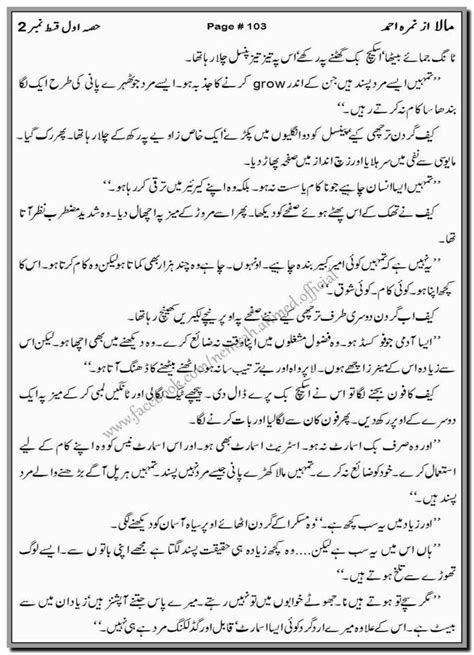 مالا از نمرہ احمد Page # 103 حصہ اول قسط نمبر 2
ٹانگ جمائے بیٹھا' اسکیچ بک گھٹنے پہ رکھے' اس پہ تیز تیز پنسل چلا رہا تھا۔
''تمہیں ایسے مرد پسند ہیں جن کے اندر grow کرنے کا جذبہ ہو۔ ایسے مرد جو ٹھہرے پانی کی طرح ایک لگا
بندھا سا کام نہ کرتے رہیں۔''
کیف گردن ترچھی کیے' پینسل کو دو انگلیوں میں پکڑے' ایک خاص زاویے پہ رکھ کے چلا رہا تھا۔ پھر رک گیا۔
مایوسی سے نفی میں سر ہلایا اور زچ انداز میں صفحہ پھاڑ دیا۔
''تمہیں ایسا انسان چاہیے جو نا کام یا ست نہ ہو۔ بلکہ وہ اپنے کیریئر میں ترقی کر رہا ہو۔''
کیف نے تھک کے اس پھٹے ہوئے صفحے کو دیکھا۔ پھر اسے مروڑ کے میز پہ اچھال دیا۔ وہ شدید مضطرب نظر آتا
تھا۔
''یہ نہیں ہے کہ تمہیں کوئی امیر کبیر بندہ چاہیے۔ اونہوں۔ چاہے وہ چند ہزار بھی کماتا ہو لیکن وہ کام کرتا ہو۔ اس کا
کچھ اپنا ہو۔ کوئی کام۔ کوئی شوق۔''
کیف اب گردن دوسری طرف ترچھی کیے نئے صفحے پہ اوپر نیچے لکیریں کھینچ رہا تھا۔
''ایسا آدمی جو فوکسڈ ہو۔ وہ فضول مشغلوں میں اپنا وقت نہ ضائع کرتا ہو۔ وہ دیکھنے میں بھی اچھا ہو۔ لیکن اس
سے زیادہ اس کے مینرز اچھے ہوں۔ لا پرواہ اور بے ترتیب سا نہ ہو۔ اسے اٹھنے بیٹھنے کا ڈھنگ آتا ہو۔''
کیف کا فون بجنے لگا تو اس نے اسکیچ بک پرے ڈال دی۔ پیچھے ٹیک لگالی اور ٹانگیں لمبی کر کے میز پہ ایک
دوسرے کے اوپر رکھ دیں۔ پھر فون کان سے لگا لیا اور بات کرنے لگا۔
''اور وہ صرف بک اسمارٹ نہ ہو۔ اسٹریٹ اسمارٹ بھی ہو۔ اور اس اسمارٹ نیس کو وہ اپنے کام کے لیے
استعمال کرے۔ خود کو ضائع نہ کرے۔ تمہیں مالا کھڑے پانی جیسے مرد نہیں پسند۔ تمہیں ہر پل آگے بڑھنے والے مرد
پسند ہیں۔''
''اور زیاد میں یہ سب کچھ ہے۔'' وہ مسکرا کے گردن اٹھائے اوپر سیاہ آسمان کو دیکھنے لگی۔
''ہاں اس میں یہ سب ہے لیکن.... وہ کچھ زیادہ ہی حقیقت پسند لگتا ہے مجھے اپنی باتوں سے۔ ایسے لوگ
تھوڑے سے تلخ ہوتے ہیں۔''
''مگر سچے تو ہوتے ہیں نا۔ جھوٹے خوابوں میں تو نہیں رہتے۔ میرے پاس جتنے آپشنز ہیں' زیاد ان میں سے
بیسٹ ہے۔ اس کے علاوہ میرے ارد گرد کوئی ایسا اسمارٹ' قابل اور گڈ لکنگ مرد ہے ہی نہیں۔''
www.facebook.com/nemrah.ahmed.official